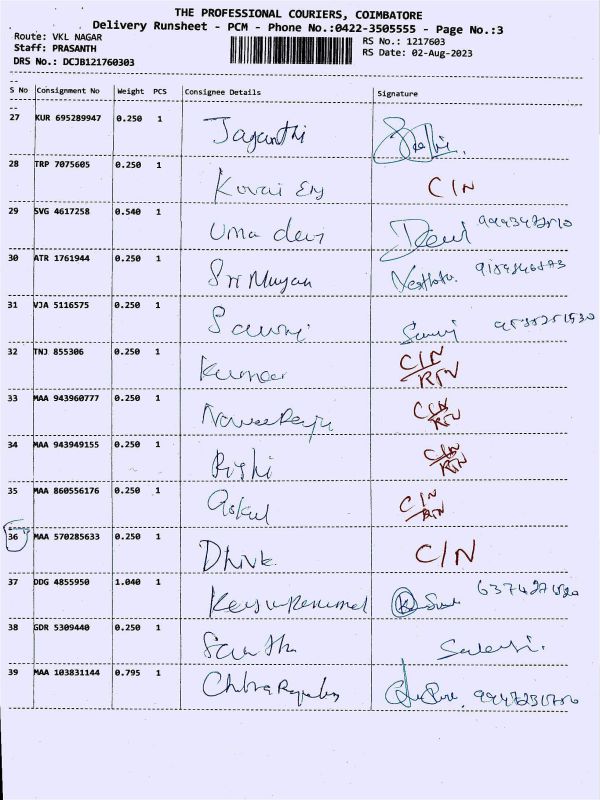 THE PROFESSIONAL COURIERS, COIMBATORE
Delivery Runsheet - PCM - Phone No.:0422-3505555 - Page No.:3
Route: VKL NAGAR
Staff: PRASANTH
DRS No.: DCJB121760303
RS No.: 1217603
RS Date: 02-Aug-2023
S No Consignment No Weight PCS Consignee Details Signature
27 KUR 695289947 0.250 1 Jayanthi
28 TRP 7075605 0.250 1 Kovai C/N
29 SVG 4617258 0.540 1 Uma devi Devi
30 ATR 1761944 0.250 1 Sri
31 VJA 5116575 0.250 1
32 TNJ 855306 0.250 1 Kumar C/N RTN
33 MAA 943960777 0.250 1 C/N RTN
34 MAA 943949155 0.250 1 Rishi C/N RTN
35 MAA 860556176 0.250 1 C/N RTN
36 MAA 570285633 0.250 1 C/N
37 DDG 4855950 1.040 1
38 GDR 5309440 0.250 1
39 MAA 103831144 0.795 1 Chitra